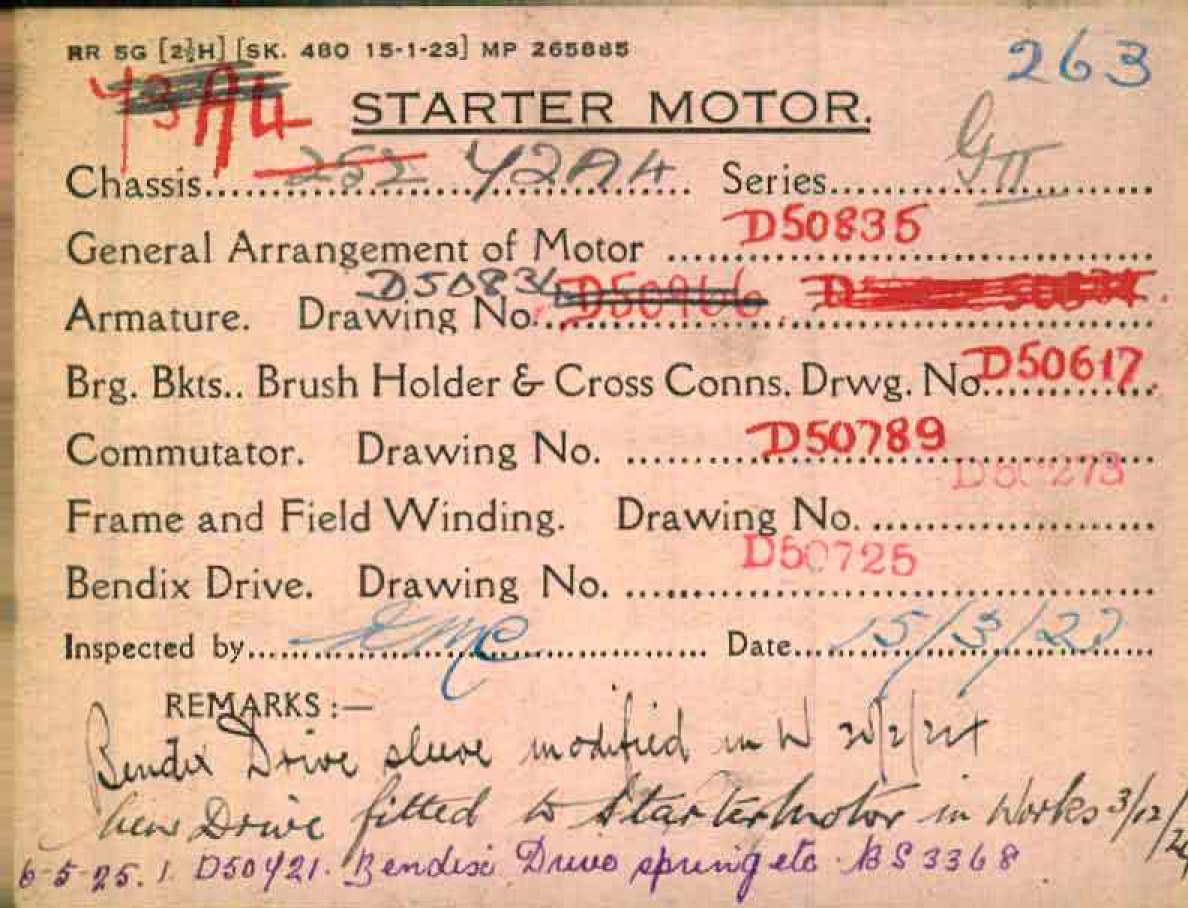 RR 5G [2½H] [SK. 480 15-1-23] MP 265885
263
43A4
STARTER MOTOR.
Chassis 252 42A4 Series GII
General Arrangement of Motor D50835
Armature. Drawing No. D50834 D50966
Brg. Bkts.. Brush Holder & Cross Conns. Drwg. No D50617
Commutator. Drawing No. D50789
Frame and Field Winding. Drawing No. D50273
Bendix Drive. Drawing No. D50725
Inspected by Date 15/3/23
REMARKS :—
Bendix Drive sleeve modified in W 20/2/24
New Drive fitted to Starter Motor in Works 3/12/24
6-5-25. 1. D50421. Bendix Drive spring etc. BS 3368